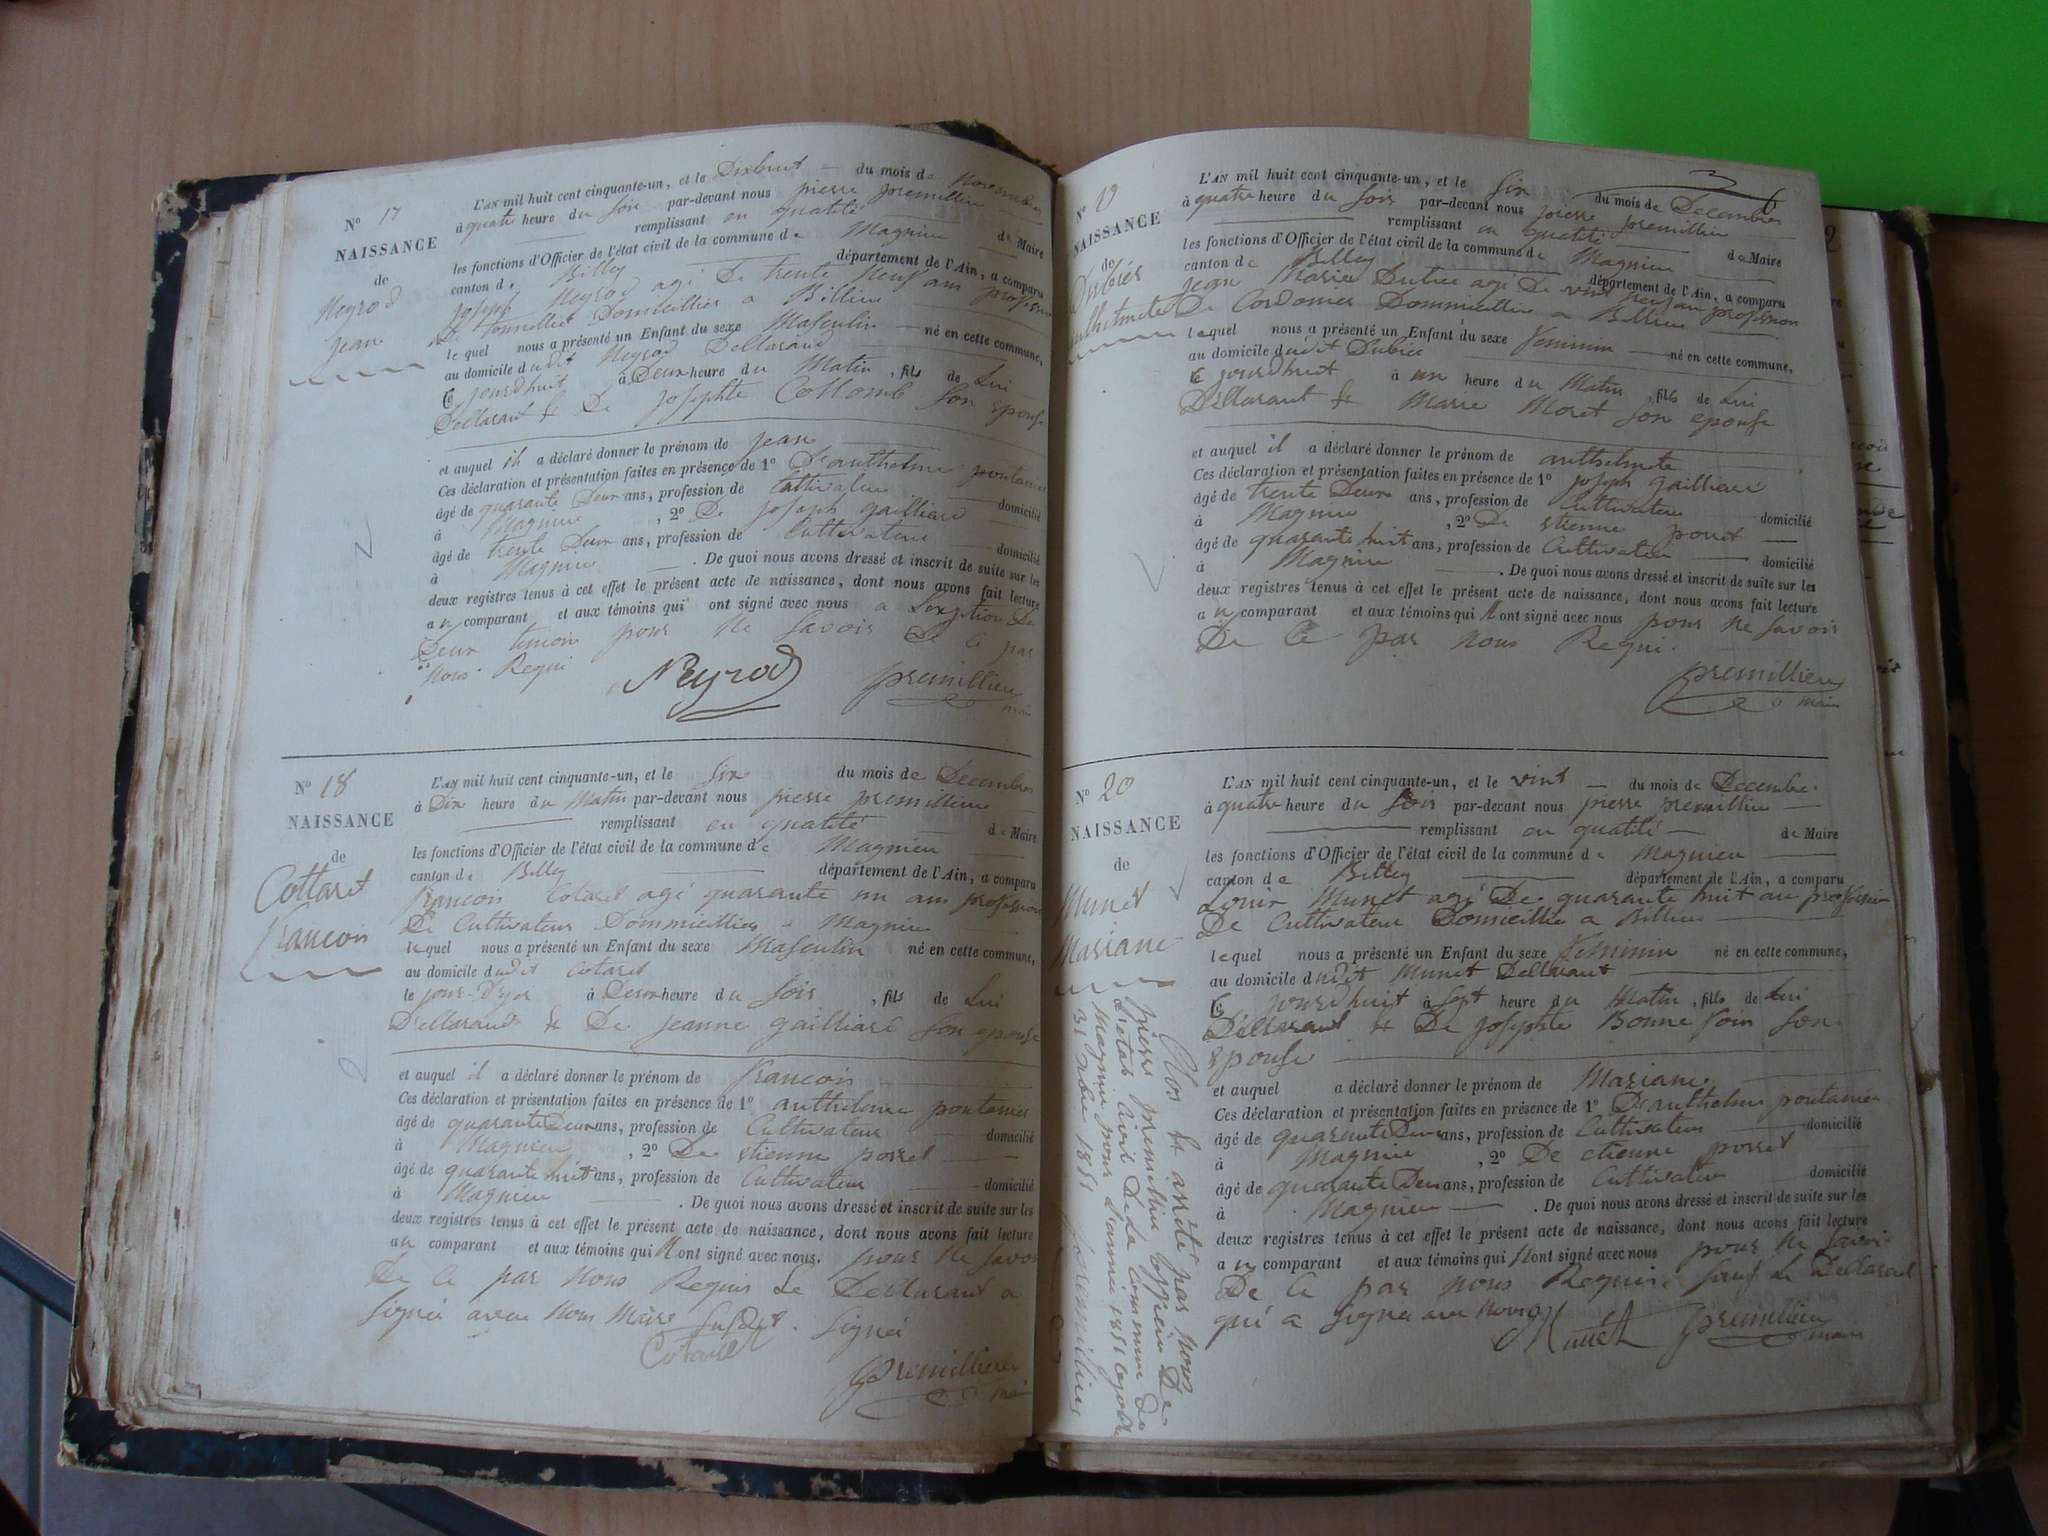 N° 17
NAISSANCE
de
Neyrod
Jean
L'AN mil huit cent cinquante-un, et le Dixhuit du mois de Novembre
à quatre heure du Soir par-devant nous pierre premillieu
remplissant en qualité de Maire
les fonctions d'Officier de l'état civil de la commune de Magnieu
canton de Billey département de l'Ain, a comparu
joseph Neyrod agé De trente Neuf ans profession
De Domicillier a Billieu
lequel nous a présenté un Enfant du sexe Masculin né en cette commune,
au domicile dudit Neyrod Dellarand
Ce jourdhuit à Deux heure du Matin, fils de Lui
Dellarant & De josephte Collomb Son epouse
et auquel il a déclaré donner le prénom de Jean
Ces déclaration et présentation faites en présence de 1° D'anthelme pontanier
âgé de quarante Deux ans, profession de Cultivateur domicilié
à Magnieu, 2° De joseph gailliard
âgé de trente Deux ans, profession de Cultivateur domicilié
à Magnieu. De quoi nous avons dressé et inscrit de suite sur les
deux registres tenus à cet effet le présent acte de naissance, dont nous avons fait lecture
au comparant et aux témoins qui ont signé avec nous a Lexption De
Deux temoin pour ne Savoir De Ce par
Nous Requi
Neyrod premillieu
maire
N° 18
NAISSANCE
de
Cottaret
francois
L'AN mil huit cent cinquante-un, et le Six du mois de Decembre
à Dix heure du Matin par-devant nous pierre premillieu
remplissant en qualité de Maire
les fonctions d'Officier de l'état civil de la commune de Magnieu
canton de Billey département de l'Ain, a comparu
francois Cotaret agé quarante un ans profession
De Cultivateur Dommicillier a Magnieu
lequel nous a présenté un Enfant du sexe Masculin né en cette commune,
au domicile dudit Cotaret
le jour-D'yer à Deux heure du Soir, fils de Lui
Dellarand & De jeanne gailliard Son epouse
et auquel il a déclaré donner le prénom de francois
Ces déclaration et présentation faites en présence de 1° anthelme pontanier
âgé de quarante Deux ans, profession de Cultivateur domicilié
à Magnieu, 2° De etienne porret
âgé de quarante huit ans, profession de Cultivateur domicilié
à Magnieu. De quoi nous avons dressé et inscrit de suite sur les
deux registres tenus à cet effet le présent acte de naissance, dont nous avons fait lecture
au comparant et aux témoins qui Nont signé avec nous. pour ne Savoir
De Ce par Nous Requis Le Dellarand a
Signée avec Nous Maire Susdit. Signée
Cotaret
premillieu
maire
N°
NAISSANCE
de
Dubiés
anthelmete
L'AN mil huit cent cinquante-un, et le Six du mois de Decembre
à quatre heure du Soir par-devant nous pierre premillieu
remplissant en qualité de Maire
les fonctions d'Officier de l'état civil de la commune de Magnieu
canton de Billey département de l'Ain, a comparu
jean Marie Dubiee agé De vint neuf ans profession
De Cordonier Dommicillier a Billieu
lequel nous a présenté un Enfant du sexe feminin né en cette commune,
au domicile dudit Dubiée
Ce jourdhuit à un heure du Matin, fils de Lui
Dellarant & Marie Moret Son epouse
et auquel il a déclaré donner le prénom de anthelmete
Ces déclaration et présentation faites en présence de 1° joseph gailliard
âgé de trente Deux ans, profession de Cultivateur domicilié
à Magnieu, 2° De etienne poret
âgé de quarante huit ans, profession de Cultivateur domicilié
à Magnieu. De quoi nous avons dressé et inscrit de suite sur les
deux registres tenus à cet effet le présent acte de naissance, dont nous avons fait lecture
au comparant et aux témoins qui Nont signé avec nous pour ne Savoir
De Ce par Nous Requi.
premillieu
maire
N° 20
NAISSANCE
de
Munet
Mariane
L'AN mil huit cent cinquante-un, et le vint du mois de Decembre.
à quatre heure du Soir par-devant nous pierre premillieu
remplissant en qualité de Maire
les fonctions d'Officier de l'état civil de la commune de Magnieu
canton de Billey département de l'Ain, a comparu
Louis Munet agé De quarante huit an profession
De Cultivateur Domicillié a Billieu
lequel nous a présenté un Enfant du sexe feminin né en cette commune,
au domicile dudit Munet Dellarant
Ce jourdhuit à Sept heure du Matin, fille de Lui
Dellarant & De josephte Bonne Son
epouse
et auquel a déclaré donner le prénom de Mariane.
Ces déclaration et présentation faites en présence de 1° D'anthelme pontanier
âgé de quarante Deux ans, profession de Cultivateur domicilié
à Magnieu, 2° De etienne porret
âgé de quarante Deux ans, profession de Cultivateur domicilié
à Magnieu. De quoi nous avons dressé et inscrit de suite sur les
deux registres tenus à cet effet le présent acte de naissance, dont nous avons fait lecture
au comparant et aux témoins qui Nont signé avec nous pour ne Savoir
De Ce par nous Requis. Sauf Le Dellarant
qui a Signée avec Nous Munet premillieu
maire
Clos et arrêté par nous
pierre premillieu officier De
L'etat civil De La Commune De
Magnieu pour L'année 1851
31 1851
premillieu